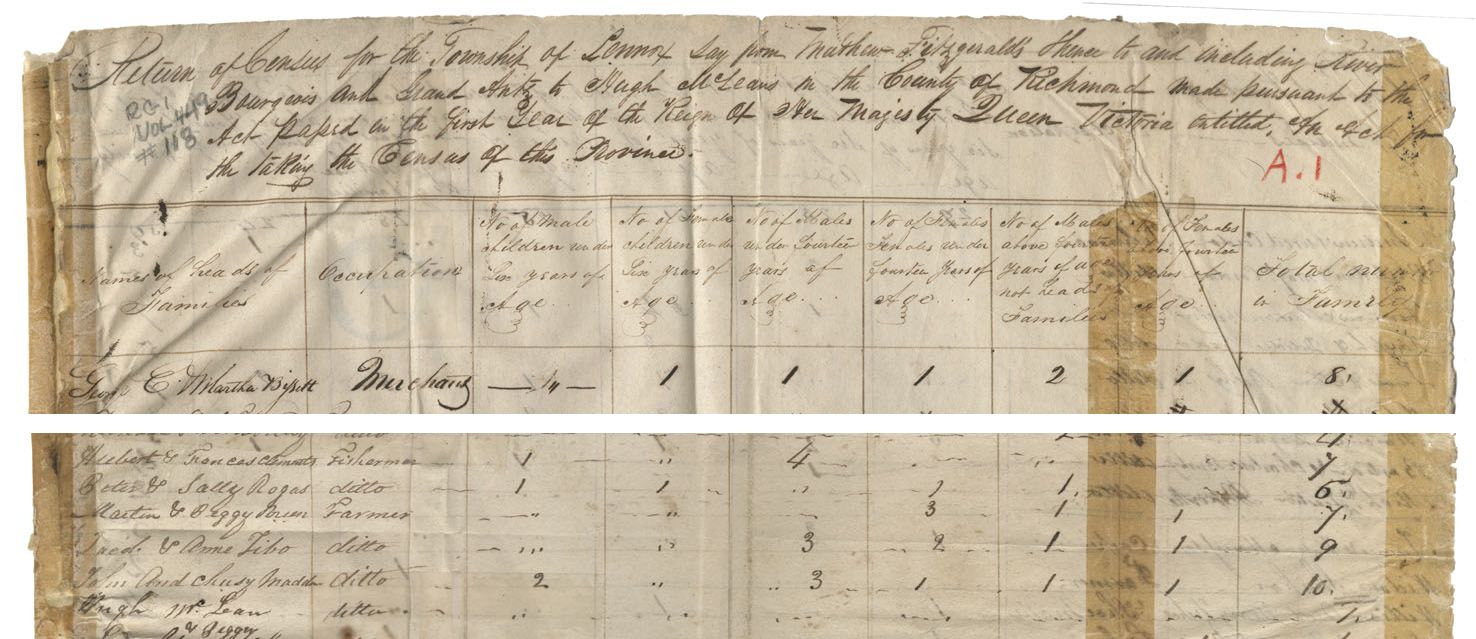 Return of Census for the Township of Lennox Say from Mathew Fitzgeralds thence to and including River
Bourgeois and Grand Antz to Hugh McLeans in the County of Richmond made pursuant to the
Act passed in the first Year of the Reign of Her Majesty Queen Victoria entitled, An Act for
the taking the Census of this Province.
RG 1
Vol 449
# 113
A.1
Names of heads of Families
Occupation
No of male children under Six years of Age
No of Females children under Six years of Age
No of Males under fourteen years of Age
No of Females Females under fourteen years of Age
No of Males above fourteen years of age not heads of Families
No of Females above fourteen years of Age
Total number in Family
George C. Martha Bissett Merchant — " — 1 1 1 2 1 8
ditto
Hubert & Frances Clements Fisherman 1 " 4 7
Peter & Sally Rogas ditto 1 1 " 1 1 6
Martin & Peggy Farmer — " " 3 1 1 7
Jacob & Anne Tibo ditto — " " 3 2 1 1 9
John And Chusy Madden ditto 2 " 3 1 1 1 10
Hugh Mc Lean ditto
& Peggy